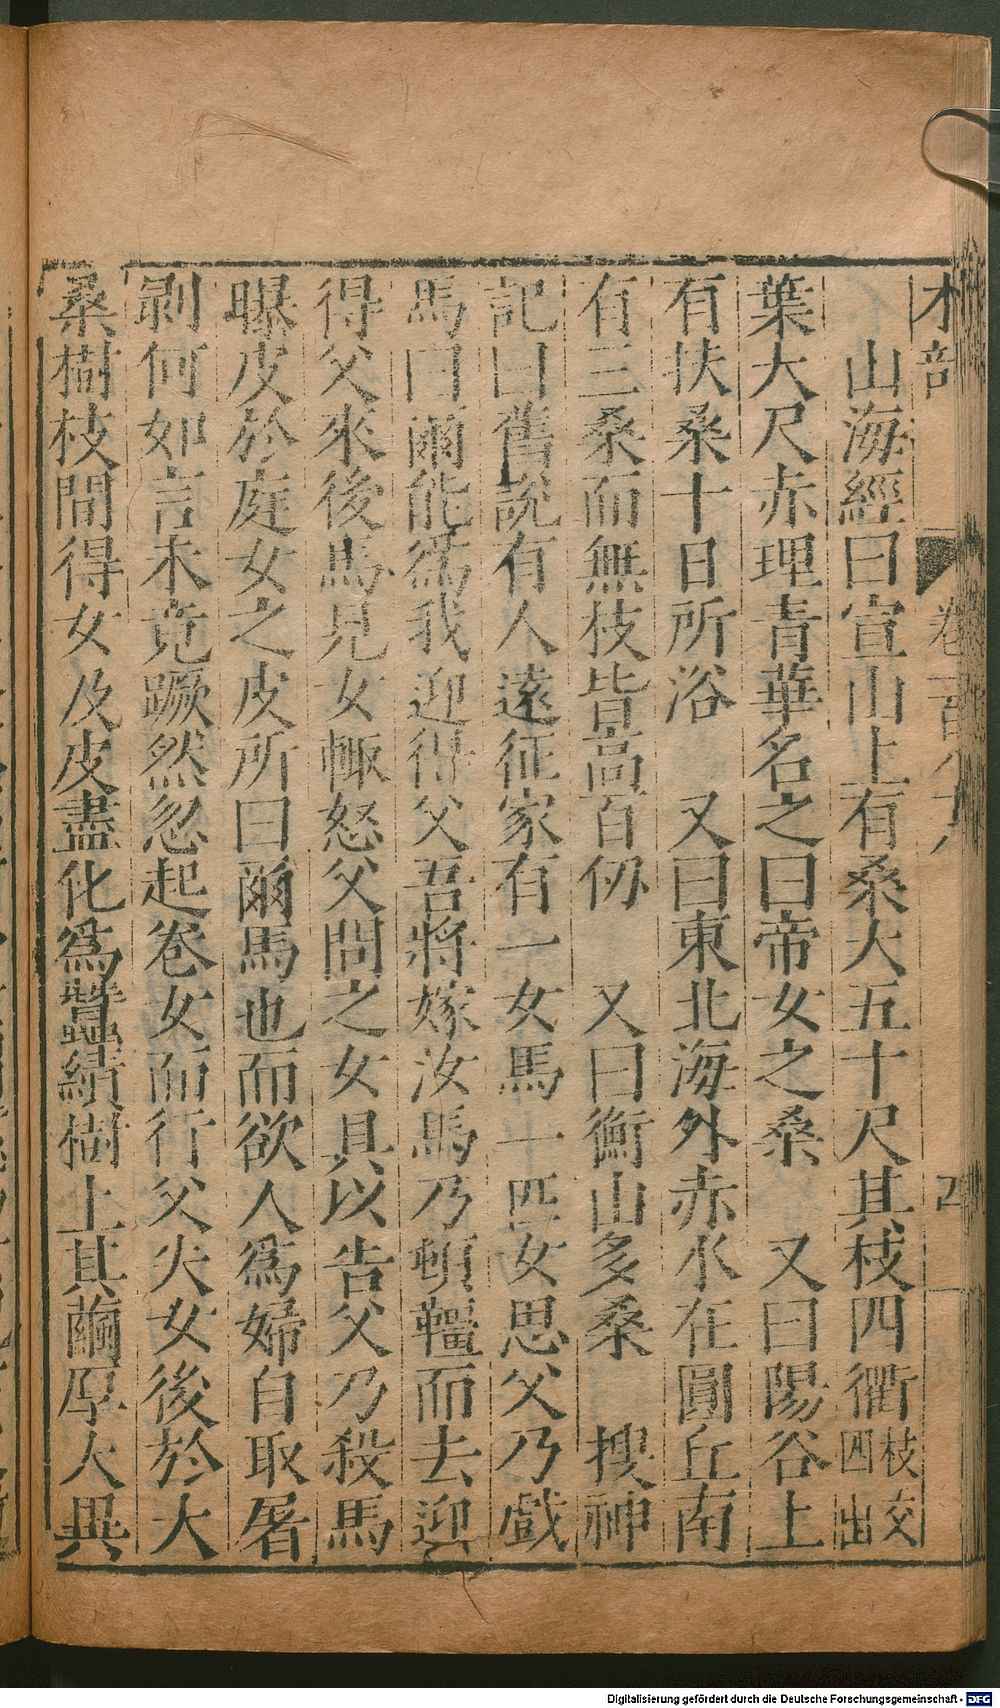 木部 卷一百八九 四
山海經曰宣山上有桑大五十尺其枝四衢枝交四出
葉大尺赤理青華名之曰帝女之桑 又曰陽谷上
有扶桑十日所浴 又曰東北海外赤水在圓丘南
有三桑而無枝皆高百仞 又曰衡山多桑 搜神
記曰舊說有人遠征家有一女馬一匹女思父乃戲
馬曰爾能爲我迎得父吾將嫁汝馬乃頓韁而去迎
得父來後馬見女輙怒父問之女具以告父乃殺馬
曝皮於庭女之皮所曰爾馬也而欲人爲婦自取屠
剥何如言未竟蹶然忽起卷女而行父失女後於大
桑樹枝間得女及皮盡化爲蠶績樹上其繭厚大異
Digitalisierung gefördert durch die Deutsche Forschungsgemeinschaft - DFG